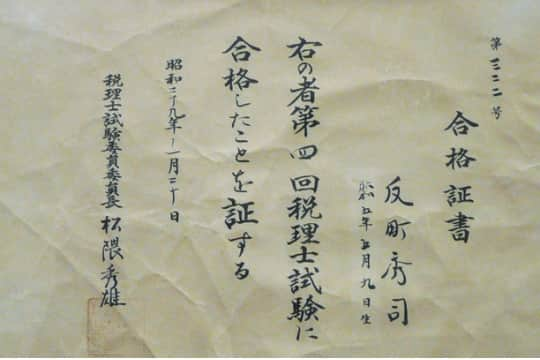 第三二二号
合格証書
反町秀司
昭和五年五月九日生
右の者第四回税理士試験に
合格したことを証する
昭和二十九年十一月二十日
税理士試験委員委員長 松隈秀雄